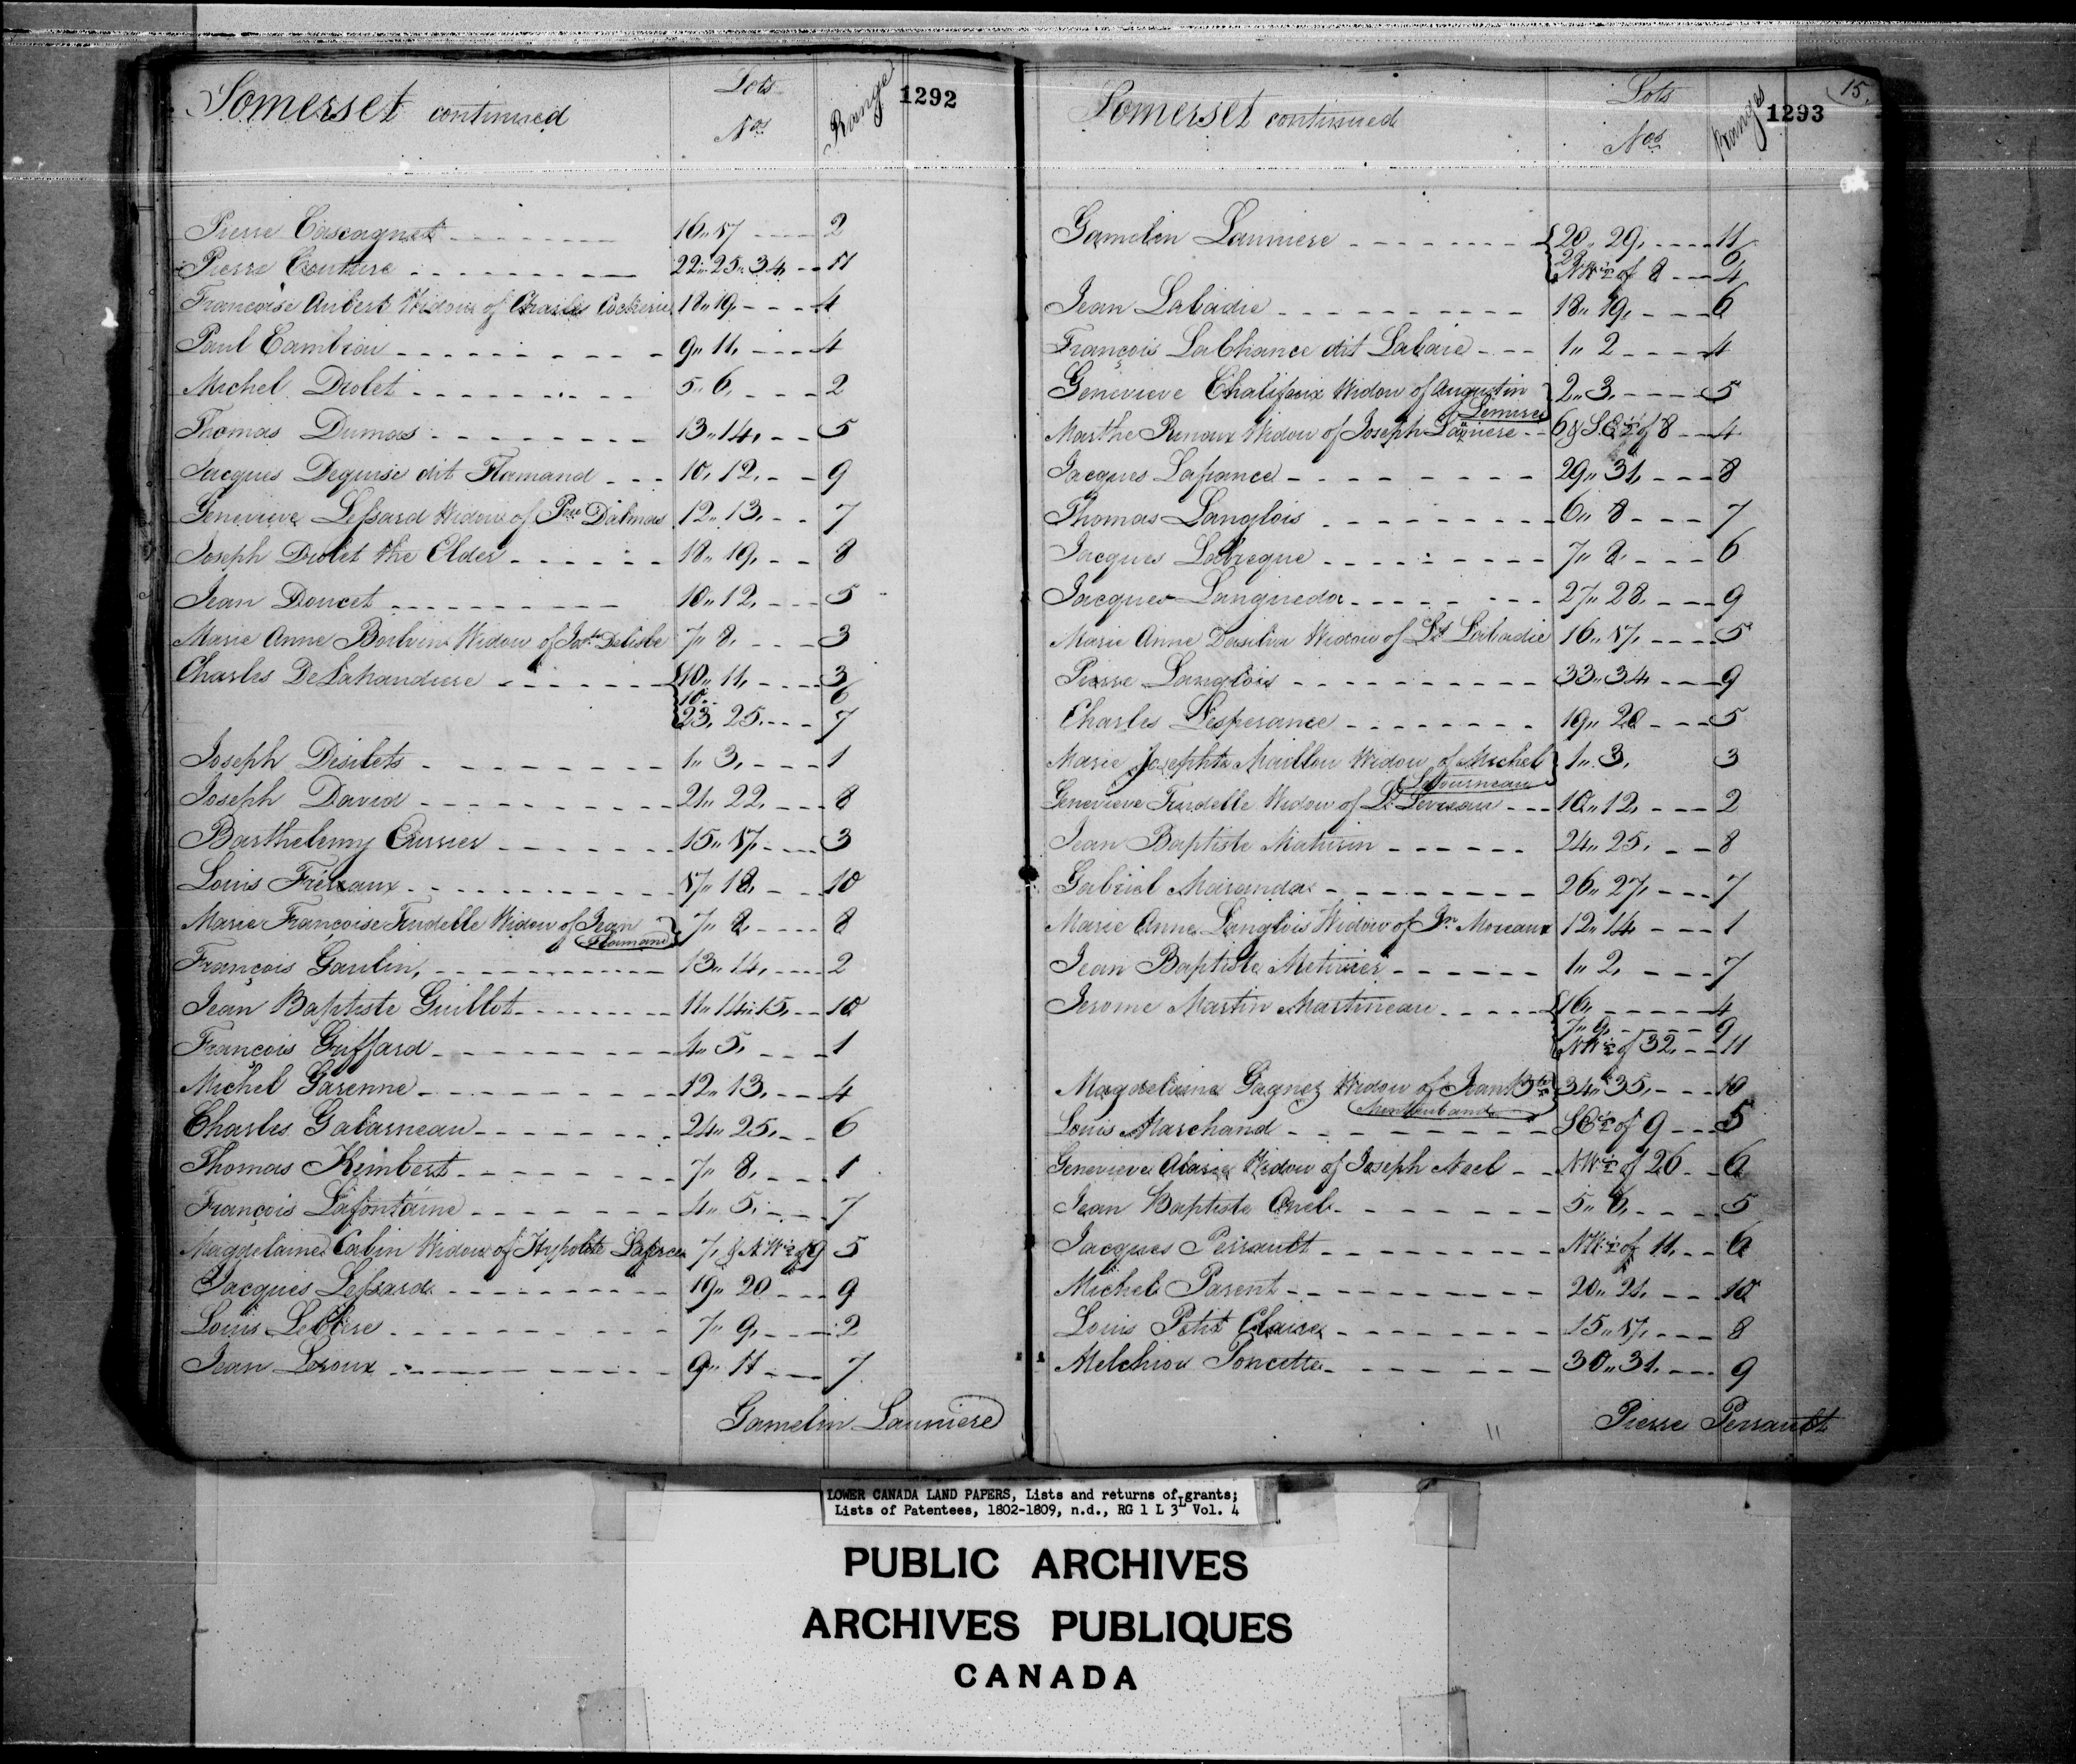 Somerset continued Lots Nos Ranges 1292
Pierre Cascagnet 16,, 17 2
Pierre Couture 22,, 25,, 34, 11
Francoise Aubert Widow of Charles Cockerie 18,, 19, 4
Paul Cambiou 9,, 11, 4
Michel Drolet 5,, 6, 2
Thomas Dumas 13,, 14, 5
Jacques Deguise dit Flamand 10, 12, 9
Genevieve Lessard Widow of Pre Dalmas 12,, 13, 7
Joseph Drolet the Elder 18,, 19, 8
Jean Doucet 10,, 12, 5
Marie Anne Boilvin Widow of Jn Bte Delisle 7,, 8, 3
Charles DeLahandiere 10,, 11, 3
10 6
23, 25, 7
Joseph Desilets 1,, 3, 1
Joseph David 21,, 22, 8
Barthelemy Cursier 15,, 17, 3
Louis Fréreaux 17,, 18, 10
Marie Françoise Trudelle Widow of Jean 7,, 8, 8
Flamand
François Gaulin, 13,, 14, 2
Jean Baptiste Guillot 11,, 14,, 15, 10
François Griffard 4,, 5, 1
Michel Garenne 12,, 13, 4
Charles Galarneau 24,, 25, 6
Thomas Kimbert 7,, 8, 1
François Lafontaine 4,, 5, 7
Magdelaine Cabin Widow of Hypolite Laforce 7, & N W ½ of 9 5
Jacques Lessard 19,, 20 9
Louis Leclere 7,, 9, 2
Jean Leroux 9,, 11 7
Gamelin Launiere
Somerset continued Lots Nos Ranges 1293 15.
Gamelin Launiere 20,, 29, 11
29 6
NW ½ of 8 4
Jean Labadie 18,, 19, 6
François LaChance dit Labarie 1,, 2 4
Genevieve Chalifaux Widow of Augustin 2,, 3, 5
Lemire
Marthe Renaux Widow of Joseph Launiere 6 & S.E ½ of 8 4
Jacques Lafrance 29,, 31, 8
Thomas Langlois 6,, 8 7
Jacques Labreque 7,, 8, 6
Jacques Languedoc 27,, 28, 9
Marie Anne Dasilva Widow of Ls Labadie 16,, 17, 5
Pierre Langlois 33,, 34, 9
Charles Lesperance 19,, 20 5
Marie Josephte Maillou Widow of Michel 1,, 3, 3
Létourneau
Genevieve Trudelle Widow of Ls Leveau 10,, 12, 2
Jean Baptiste Mathurin 24,, 25, 8
Gabriel Maranda 26,, 27, 7
Marie Anne Langlois Widow of Jn Moreaux 12,, 14, 1
Jean Baptiste Metivier 1,, 2, 7
Jerome Martin Martineau 16, 4
7,, 9, 9
NW ½ of 32, 11
Magdelaine Gagnez Widow of Jean Bte 34,, 35, 10
Montauband
Louis Marchand SE ½ of 9 5
Genevieve Alarie Widow of Joseph Noel N.W ½ of 26 6
Jean Baptiste Onel 5,, 6, 5
Jacques Perrault NW ½ of 11, 6
Michel Parent 20,, 21, 10
Louis Petit Claire 15,, 17, 8
Melchior Poncette 30,, 31, 9
Pierre Perrault
LOWER CANADA LAND PAPERS, Lists and returns of grants;
Lists of Patentees, 1802-1809, n.d., RG 1 L 3L Vol. 4
PUBLIC ARCHIVES
ARCHIVES PUBLIQUES
CANADA